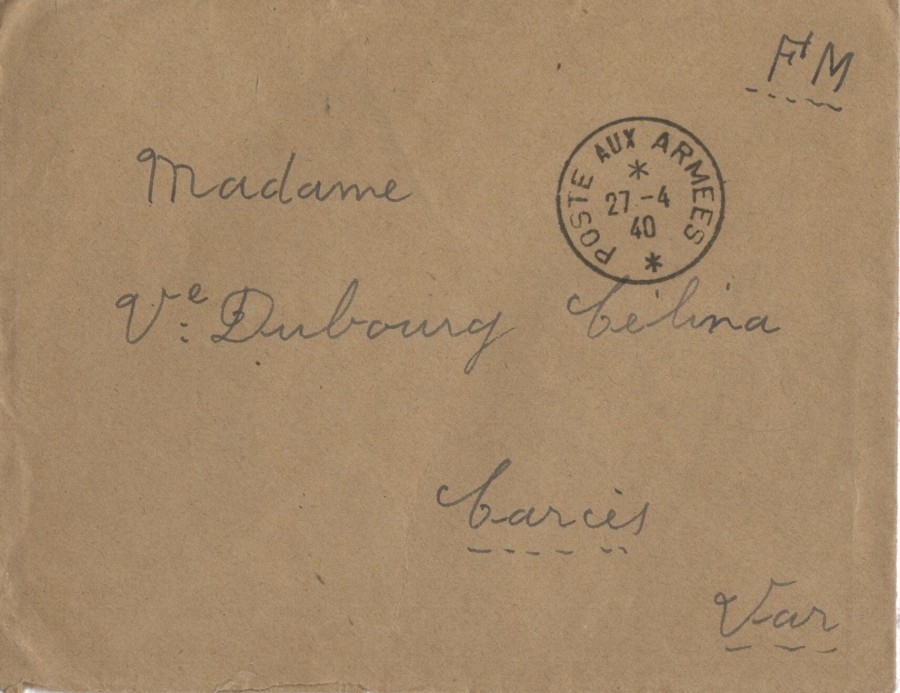 F M
Madame
POSTE AUX ARMEES
27 - 4
40
Ve Dubourg Célina
Carcès
Var